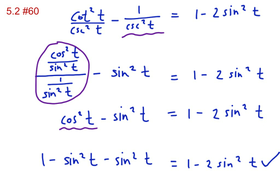 5.2 #60
cot²t/csc²t − 1/csc²t = 1 − 2sin²t
(cos²t/sin²t)/(1/sin²t) − sin²t = 1 − 2sin²t
cos²t − sin²t = 1 − 2sin²t
1 − sin²t − sin²t = 1 − 2sin²t ✓